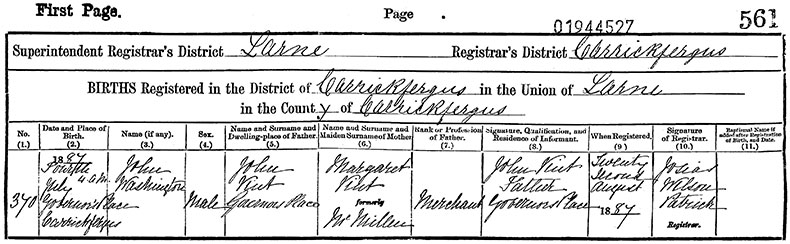 First Page. Page 01944527 561
Superintendent Registrar's District Larne Registrar's District Carrickfergus
BIRTHS Registered in the District of Carrickfergus in the Union of Larne
in the County of Carrickfergus
No. (1.)
Date and Place of Birth. (2.)
Name (if any). (3.)
Sex. (4.)
Name and Surname and Dwelling-place of Father. (5.)
Name and Surname and Maiden Surname of Mother. (6.)
Rank or Profession of Father. (7.)
Signature, Qualification, and Residence of Informant. (8.)
When Registered. (9.)
Signature of Registrar. (10.)
Baptismal Name if added after Registration of Birth, and Date. (11.)
370
1887
July
4 A.M.
Governors Place
Carrickfergus
John
Washington
Male
John
Governors Place
Margaret
formerly
McMillen
Merchant
John
Father
Governors Place
Twenty
second
August
1887
Josias
Wilson
Patrick
Registrar.